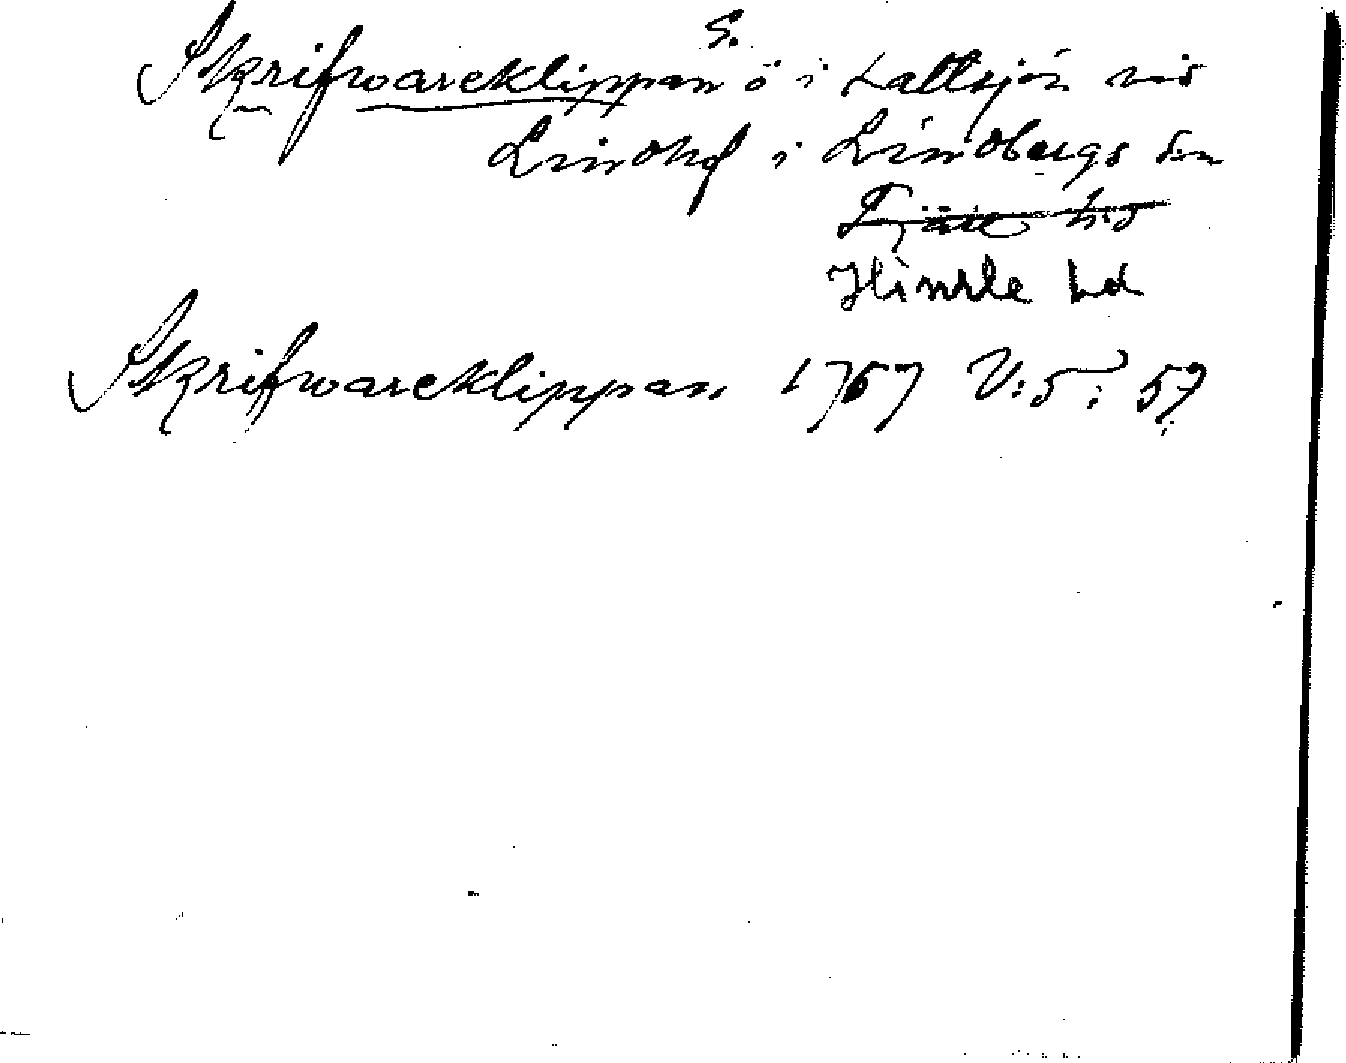 S.
Skrifwareklippan ö i Saltsjön vid
Lindhof i Lindbergs sn
Fjäre hd
Himle hd
Skrifwareklippan 1767 V:5: 57